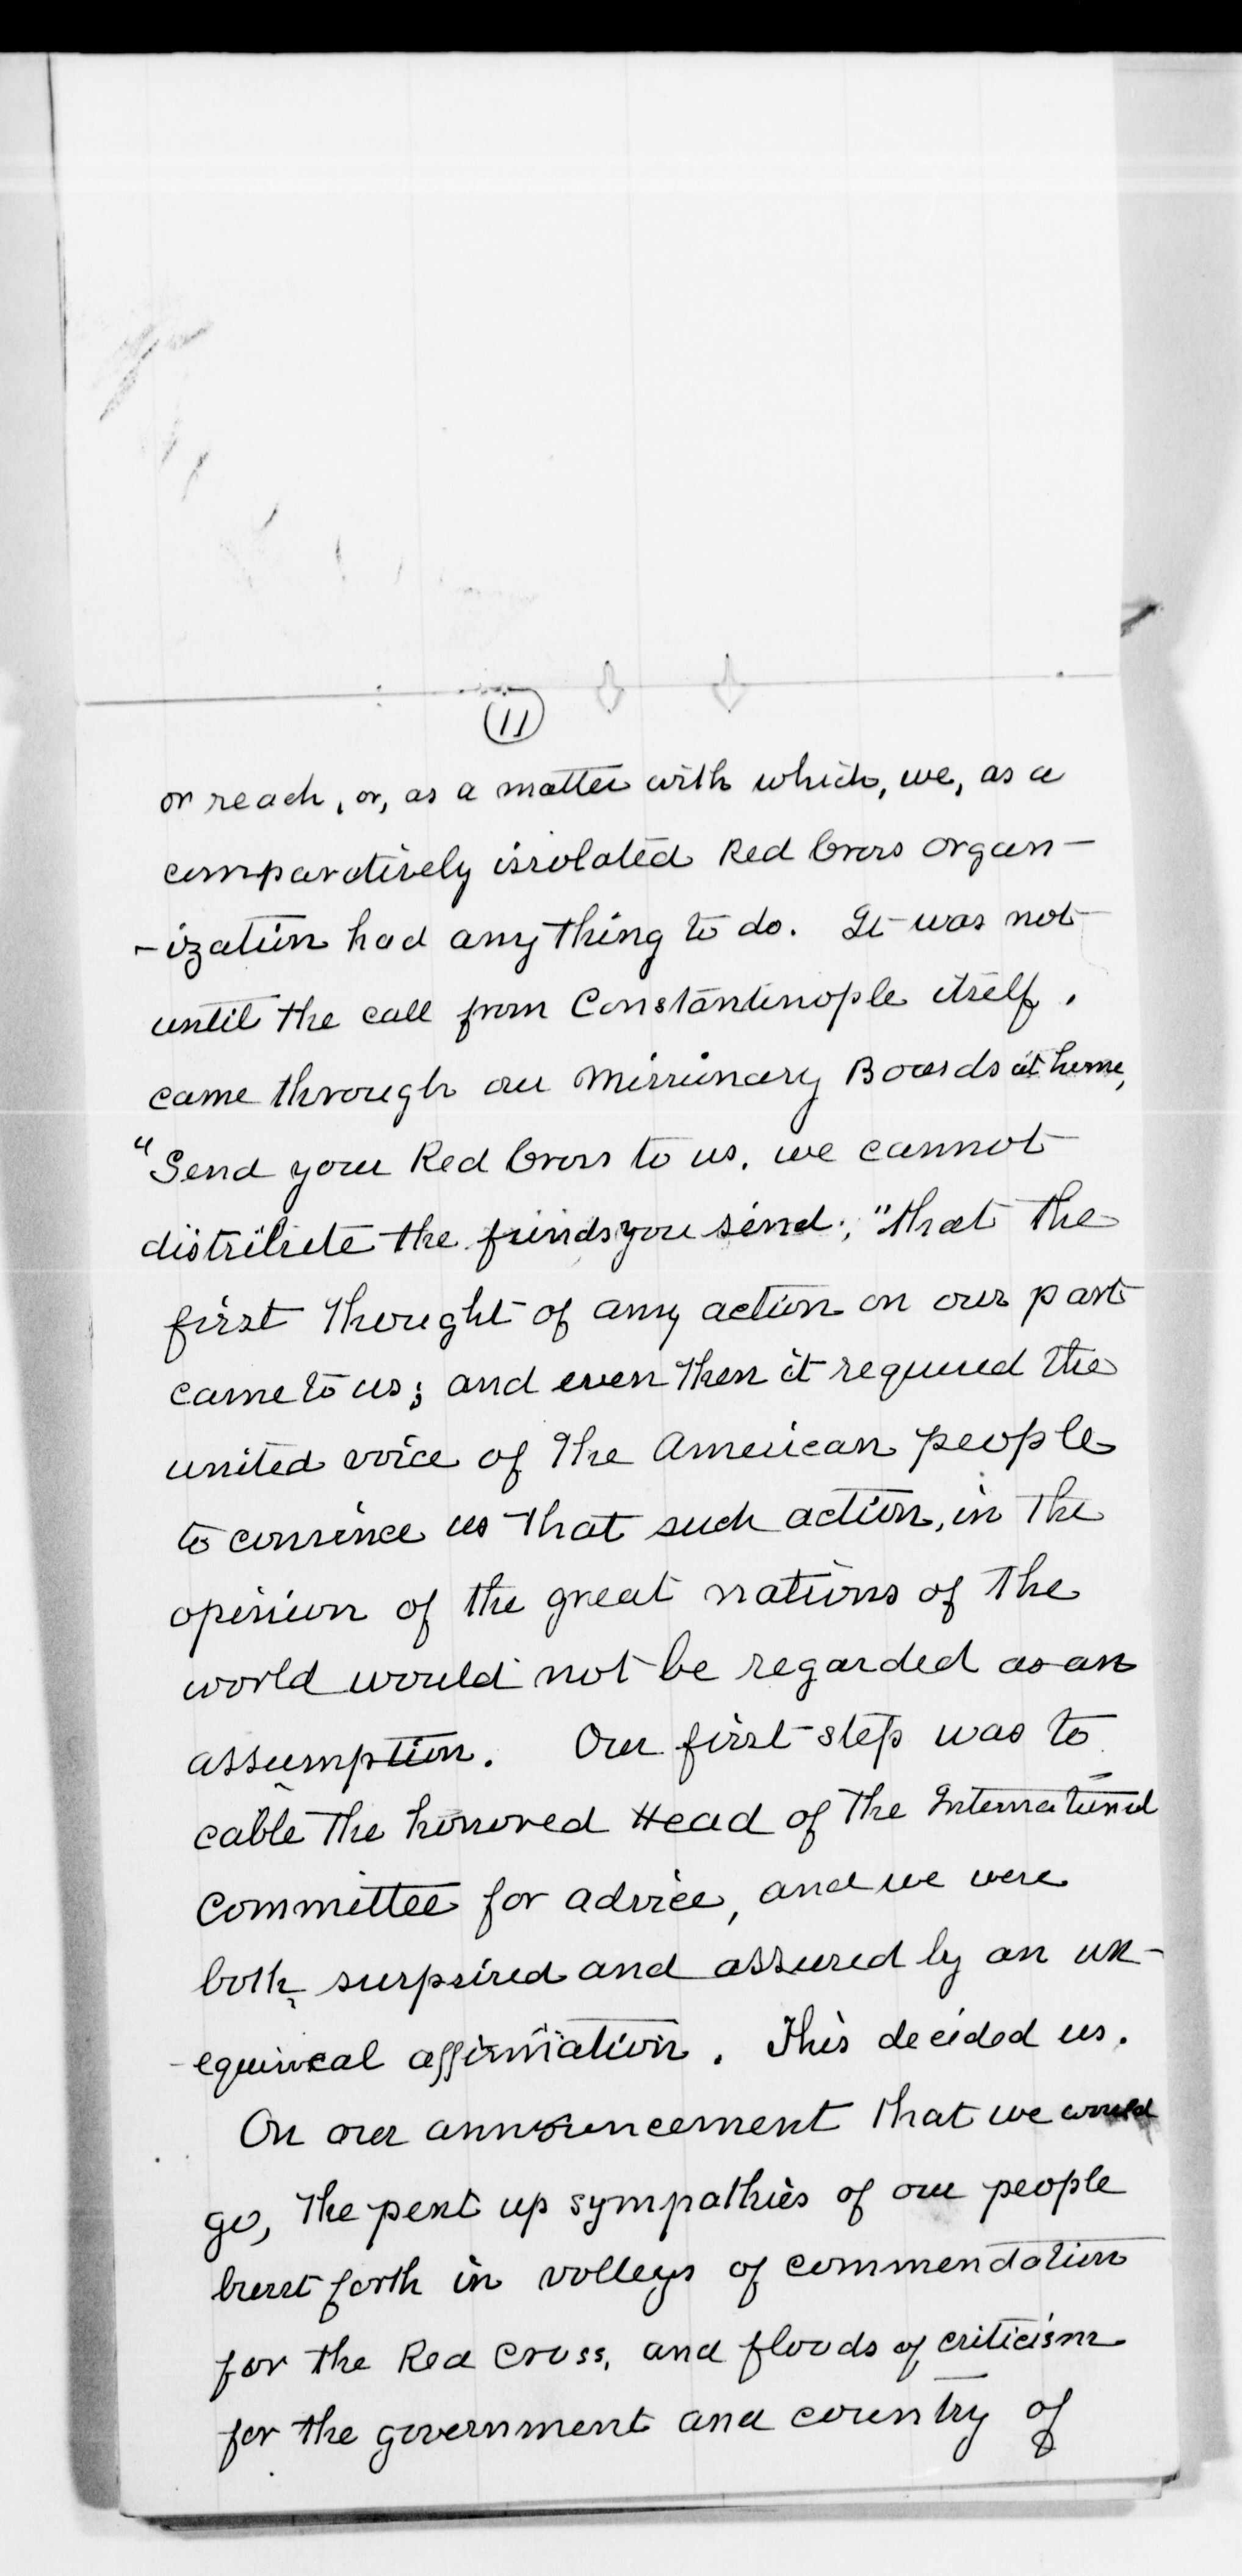 11
or reach, or, as a matter with which, we, as a
comparatively isolated Red Cross organ-
-ization had anything to do. It was not
until the call from Constantinople itself,
came through our Missionary Boards at home,
"Send your Red Cross to us. we cannot
distribute the funds you send;" that the
first thought of any action on our part
came to us; and even then it required the
united voice of the American people
to convince us that such action, in the
opinion of the great nations of the
world would not be regarded as an
assumption. Our first step was to
cable the honored Head of the International
Committee for advice, and we were
both surprised and assured by an un-
-equivocal affirmation. This decided us.
On our announcement that we would
go, the pent up sympathies of our people
burst forth in volleys of commendation
for the Red Cross, and floods of criticism
for the government and country of